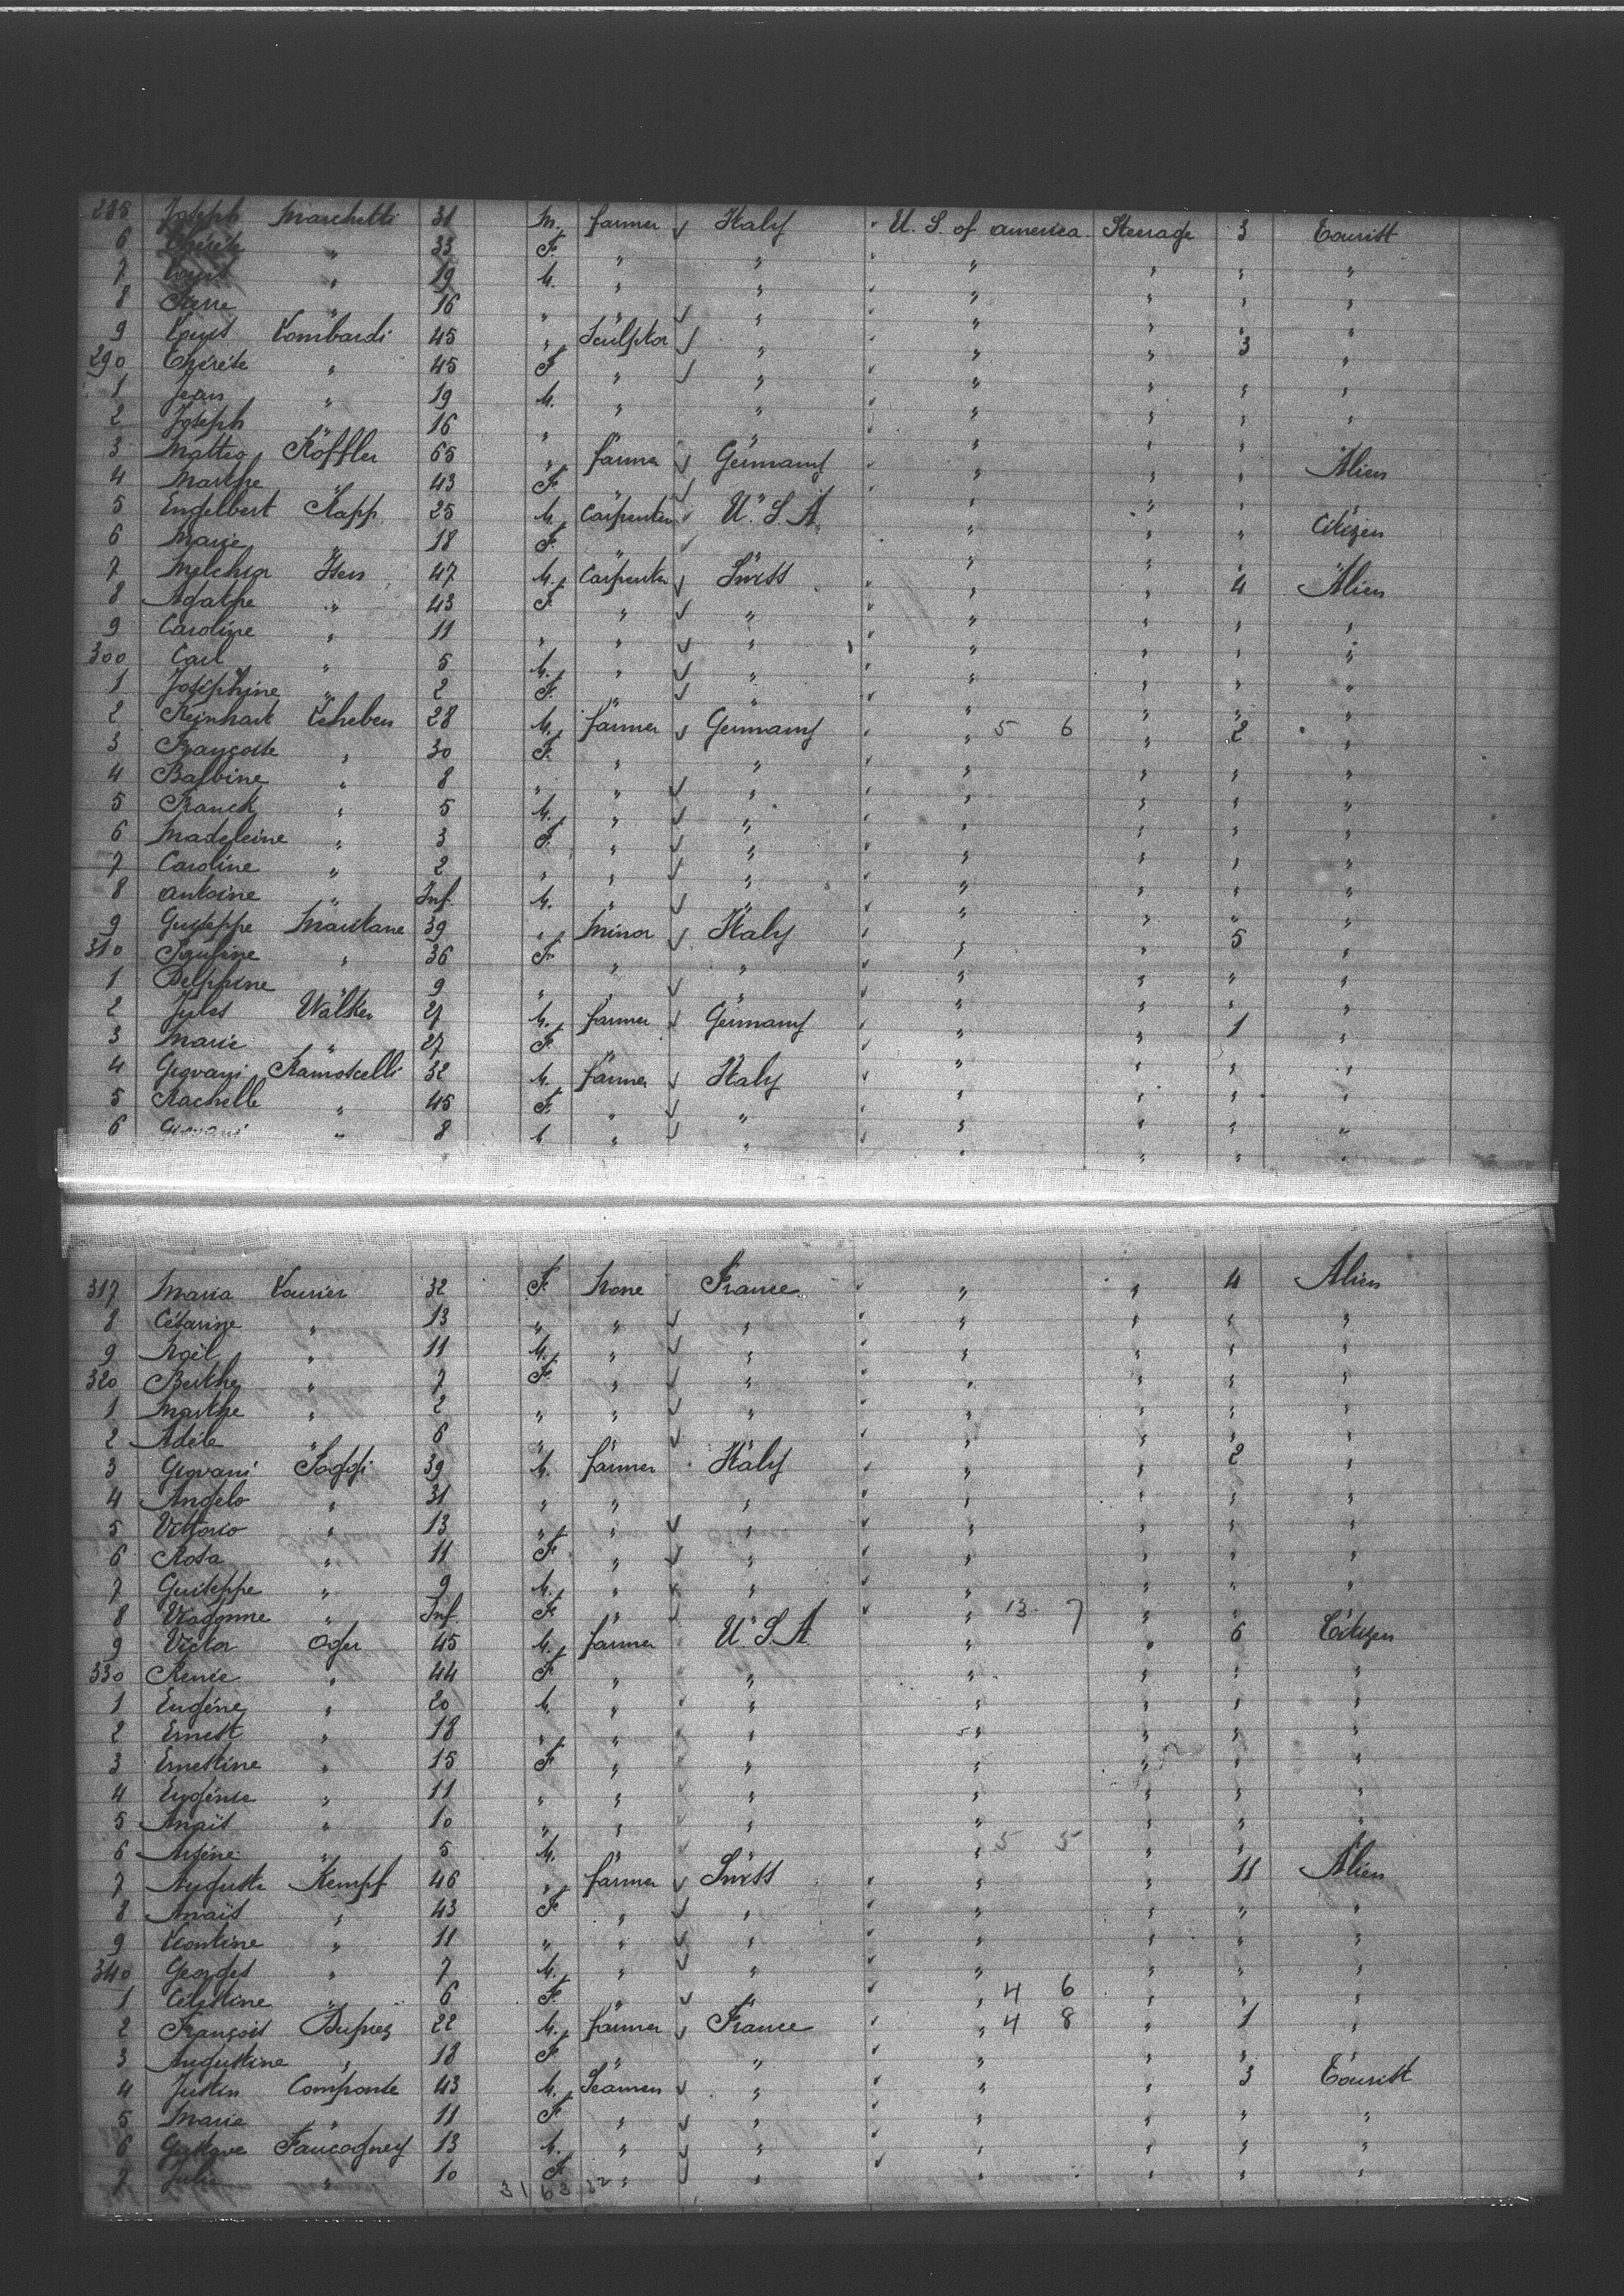 285 Joseph Marchetti 31 M. farmer Italy U. S. of america Steerage 3 Tourist
6 Thérèse " 33 F. " " " " " "
7 Louis " 19 M. " " " " " "
8 Pierre " 16 " " " " " " "
9 Louis Lombardi 45 " Sculptor " " " 3 "
290 Thérèse " 45 F " " " " " "
1 Jean " 19 M. " " " " " "
2 Joseph " 16 " " " " " " "
3 Matteo Köffler 65 " farmer Germany " " " Alien
4 Marthe " 43 F. " " " " " "
5 Engelbert Rapp 25 M. Carpenter U. S. A. " " " Citizen
6 Marie " 18 F. " " " " " "
7 Melchior Iten 47 M. Carpenter Swiss " " 4 Alien
8 Agathe " 43 F. " " " " " "
9 Caroline " 11 " " " " " " "
300 Carl " 5 M. " " " " " "
1 Joséphine " 2 F. " " " " " "
2 Reinhart 28 M. farmer Germany " 5 6 " 2 "
3 Françoise " 30 F. " " " " " "
4 Balbine " 8 " " " " " " "
5 Franck " 5 M. " " " " " "
6 Madeleine " 3 F. " " " " " "
7 Caroline " 2 " " " " " " "
8 Antoine " Inf. M. " " " " " "
9 Guiseppe 39 " Minor Italy " " 5 "
310 36 F. " " " " " "
1 Delphine " 9 " " " " " " "
2 Jules Walker 27 M. farmer Germany " " 1 "
3 Marie " 27 F. " " " " " "
4 Giovani Ramoscelli 32 M. farmer Italy " " " "
5 Rachelle " 45 F. " " " " " "
6 Giovani " 8 M " " " " " "
317 Maria Lourier 32 F. None France " " 4 Alien
8 Césarine " 13 " " " " " " "
9 Noël " 11 M. " " " " " "
320 Berthe " 7 F. " " " " " "
1 Marthe " 2 " " " " " " "
2 Adèle " 6 " " " " " " "
3 Giovani Soggi 39 M. farmer Italy " " 2 "
4 Angelo " 31 " " " " " " "
5 Vittorio " 13 " " " " " " "
6 Rosa " 11 F " " " " " "
7 Guiseppe " 9 M. " " " " " "
8 " Inf. F. " " " 13 7 " " "
9 Victor Oger 45 M. farmer U. S. A. " " 6 Citizen
330 Renée " 44 F " " " " " "
1 Eugène " 20 M. " " " " " "
2 Ernest " 18 " " " " " " "
3 Ernestine " 15 F " " " " " "
4 Eugénie " 11 " " " " " " "
5 Anaïs " 10 " " " " " " "
6 Arsène " 5 M. " " " 5 5 " " "
7 Auguste Kempf 46 " farmer Swiss " " 11 Alien
8 Anaïs " 43 F " " " " " "
9 Léontine " 11 " " " " " " "
340 Georges " 7 M. " " " " " "
1 Célestine " 6 F. " " " 4 6 " " "
2 François Dupuez 22 M. farmer France " 4 8 " 1 "
3 Augustine " 18 F " " " " " "
4 Justin Componte 43 M. Seamen " " " 3 Tourist
5 Marie " 11 F " " " " " "
6 Gustave Faucogney 13 M. " " " " " "
7 Julie " 10 F " " " " " "
31 63 32